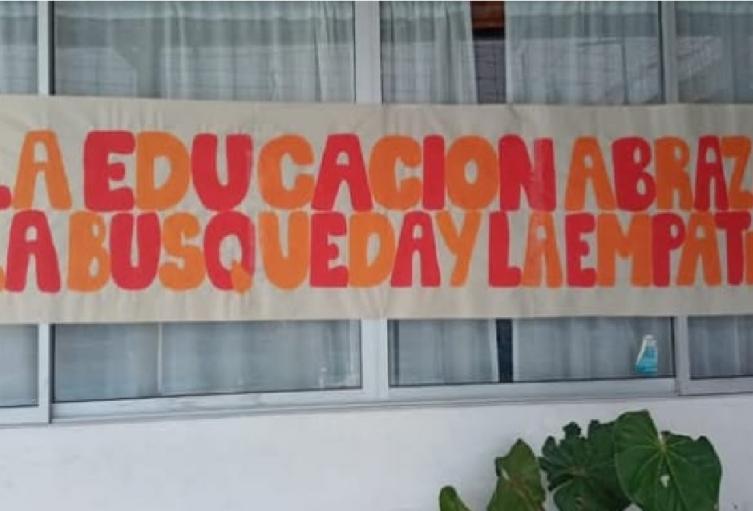 LA EDUCACION ABRAZ
LA BUSQUEDA Y LA EMPAT